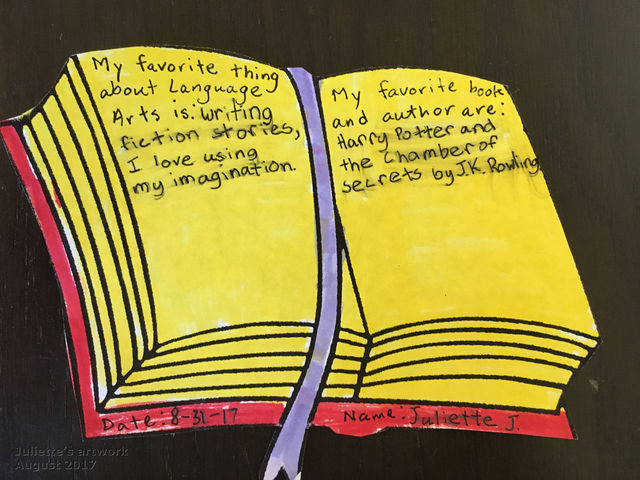 My favorite thing
about Language
Arts is: writing
fiction stories,
I love using
my imagination.
My favorite book
and author are:
Harry Potter and
the Chamber of
secrets by J.K. Rowling
Date: 8-31-17
Name: Juliette J.
Juliette's artwork
August 2017